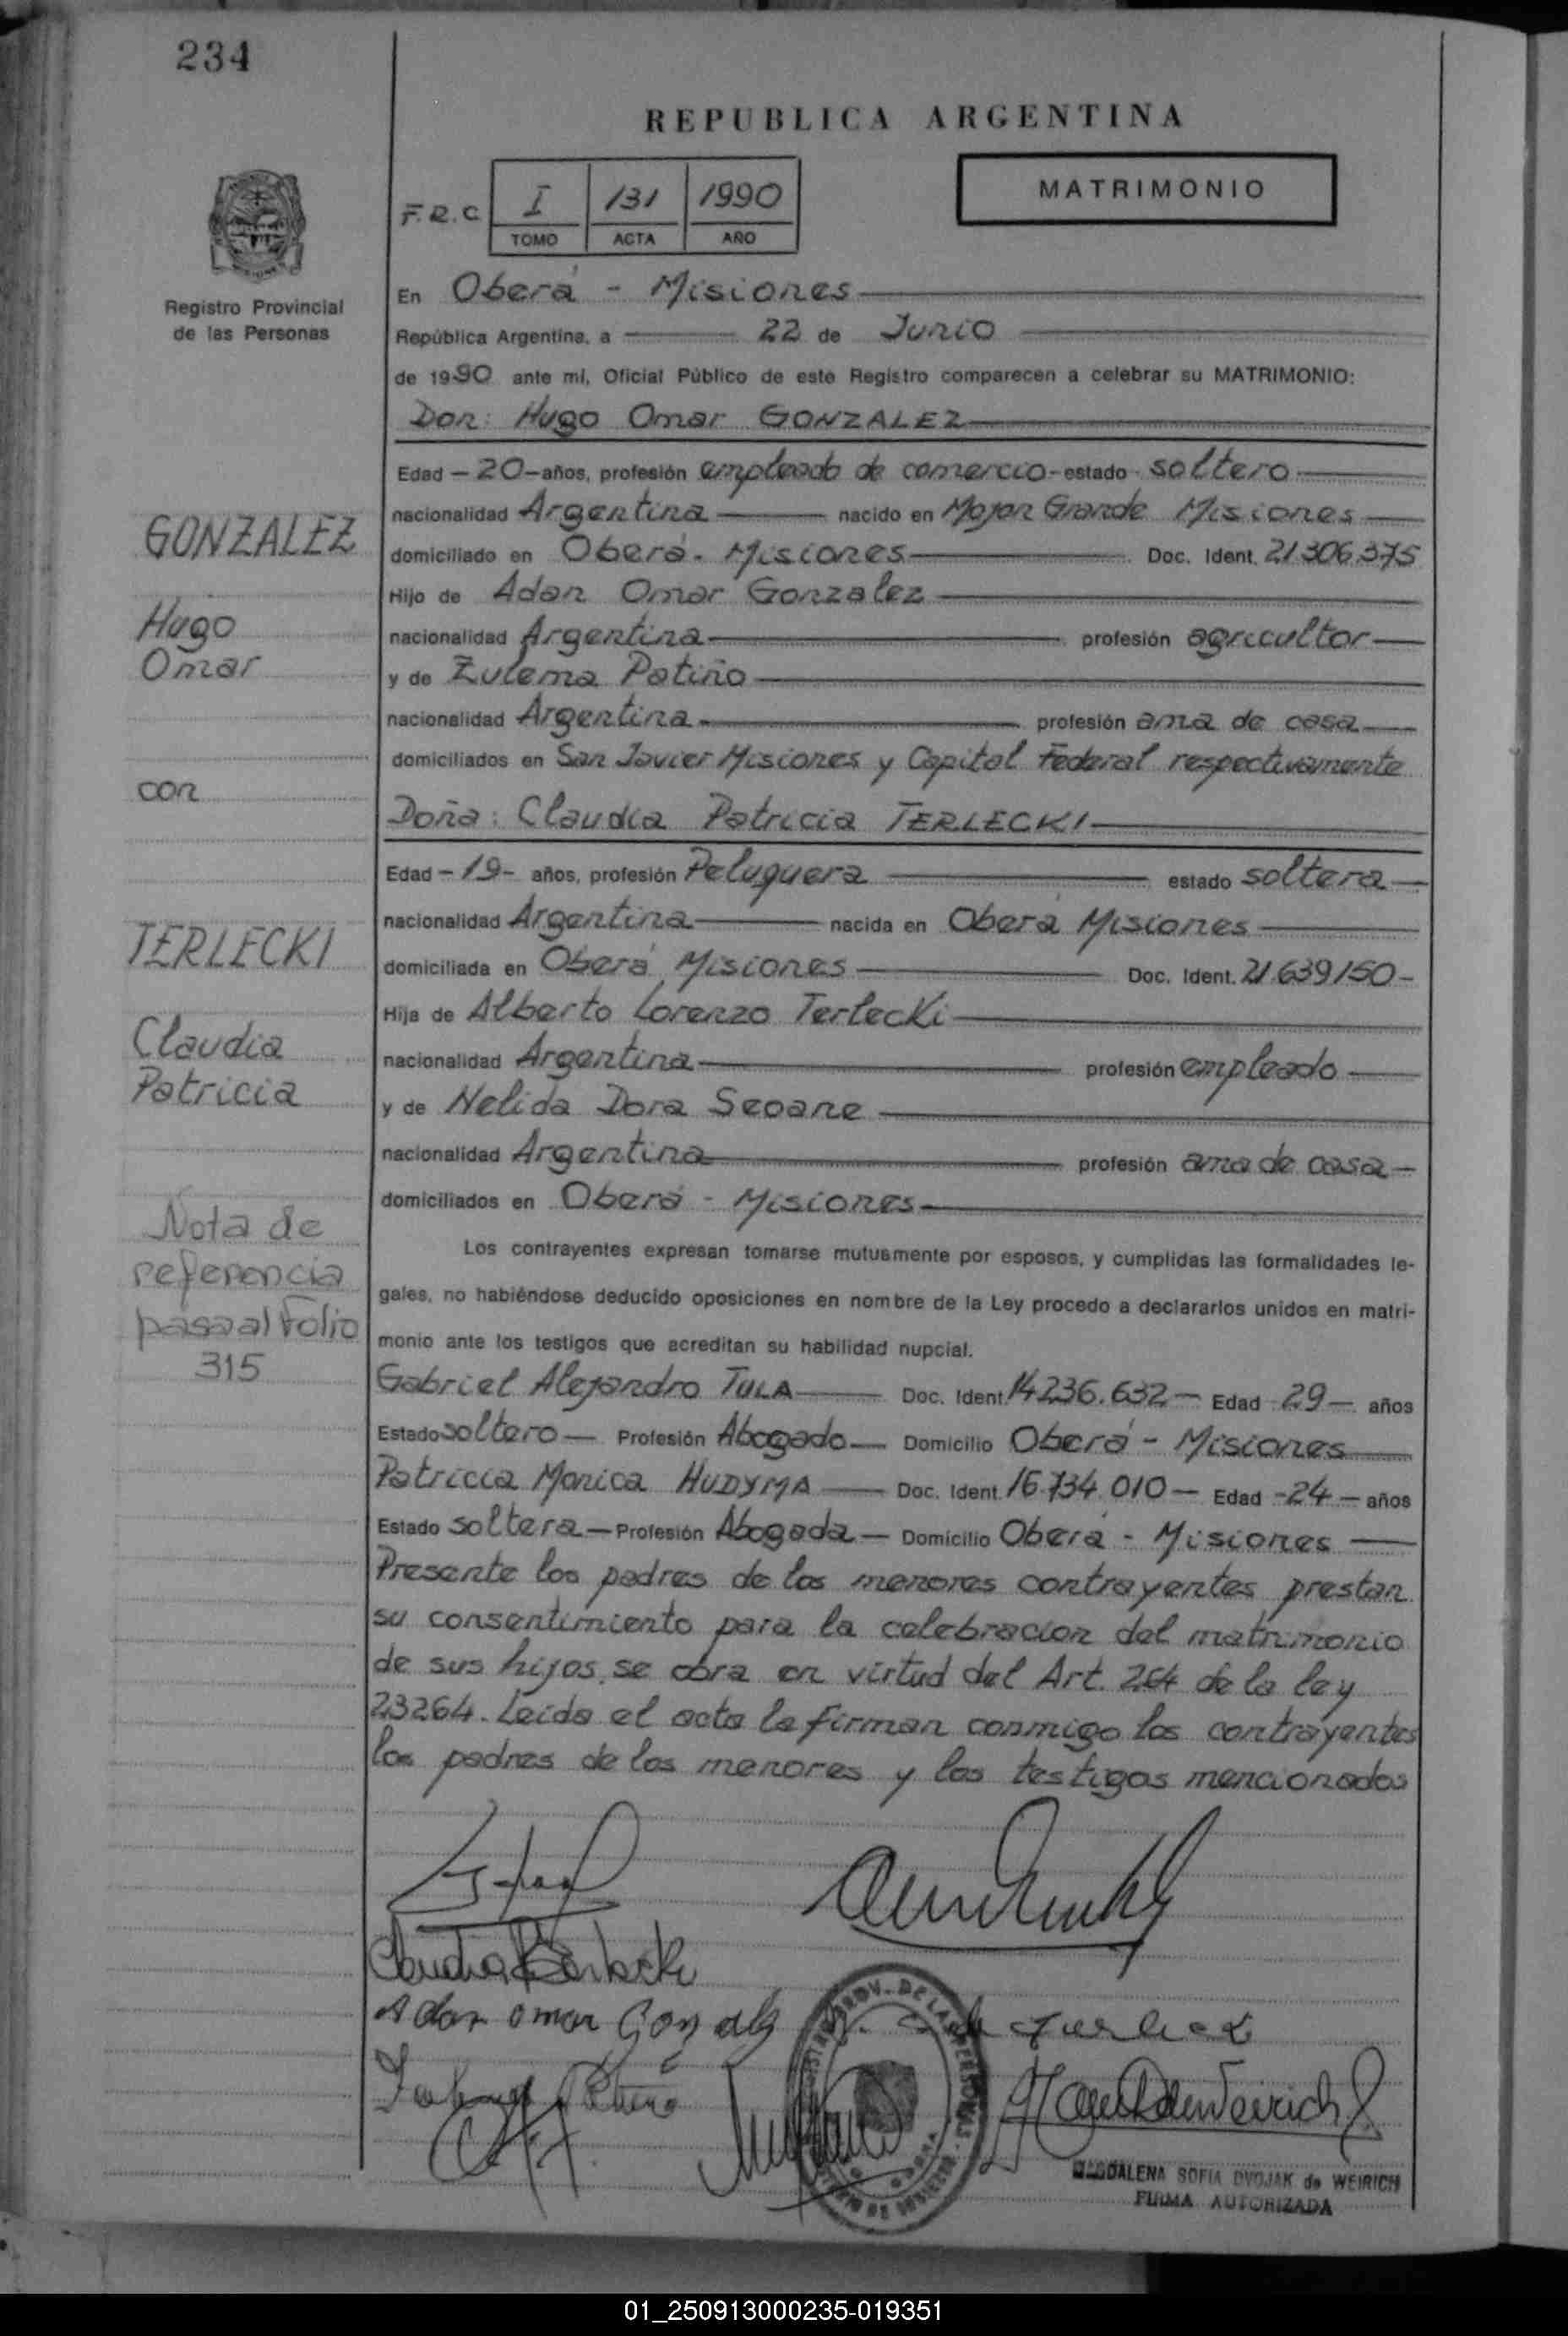 234
REPUBLICA ARGENTINA
MATRIMONIO
F.R.C I 131 1990
TOMO ACTA AÑO
Registro Provincial
de las Personas
En Oberá - Misiones
República Argentina, a 22 de Junio
de 1990 ante mí, Oficial Público de este Registro comparecen a celebrar su MATRIMONIO:
Don: Hugo Omar GONZALEZ
Edad - 20 - años, profesión empleado de comercio - estado soltero
nacionalidad Argentina nacido en Mojon Grande Misiones
domiciliado en Oberá - Misiones Doc. Ident. 21.306.375
Hijo de Adan Omar Gonzalez
nacionalidad Argentina profesión agricultor
y de Zulema Patiño
nacionalidad Argentina profesión ama de casa
domiciliados en San Javier Misiones y Capital Federal respectivamente
Doña: Claudia Patricia TERLECKI
Edad - 19 - años, profesión Peluquera estado soltera
nacionalidad Argentina nacida en Oberá Misiones
domiciliada en Oberá Misiones Doc. Ident. 21.639150-
Hija de Alberto Lorenzo Terlecki
nacionalidad Argentina profesión empleado
y de Nelida Dora Seoane
nacionalidad Argentina profesión ama de casa
domiciliados en Oberá - Misiones
Los contrayentes expresan tomarse mutuamente por esposos, y cumplidas las formalidades le-
gales, no habiéndose deducido oposiciones en nombre de la Ley procedo a declararlos unidos en matri-
monio ante los testigos que acreditan su habilidad nupcial.
Gabriel Alejandro TULA Doc. Ident. 14236.632 - Edad 29 - años
Estado soltero - Profesión Abogado - Domicilio Oberá - Misiones
Patricia Monica HUDYMA Doc. Ident. 16.734.010 - Edad - 24 - años
Estado soltera - Profesión Abogada - Domicilio Oberá - Misiones
Presente los padres de los menores contrayentes prestan
su consentimiento para la celebracion del matrimonio
de sus hijos. se obra en virtud del Art. 264 de la ley
23264. Leida el acta la firman conmigo los contrayentes
los padres de los menores y los testigos mencionados
GONZALEZ
Hugo
Omar
con
TERLECKI
Claudia
Patricia
Nota de
referencia
pasa al Folio
315
Adan omar Gonzalz
MAGDALENA SOFIA DVOJAK de WEIRICH
FIRMA AUTORIZADA
01_250913000235-019351